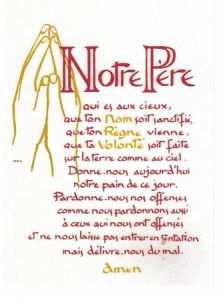 Notre Père
qui es aux cieux,
que ton Nom soit sanctifié,
que ton Règne vienne,
que ta Volonté soit faite
sur la terre comme au ciel.
Donne-nous aujourd'hui
notre pain de ce jour.
Pardonne-nous nos offenses
comme nous pardonnons aussi
à ceux qui nous ont offensés
et ne nous laisse pas entrer en tentation
mais délivre-nous du mal.
Amen